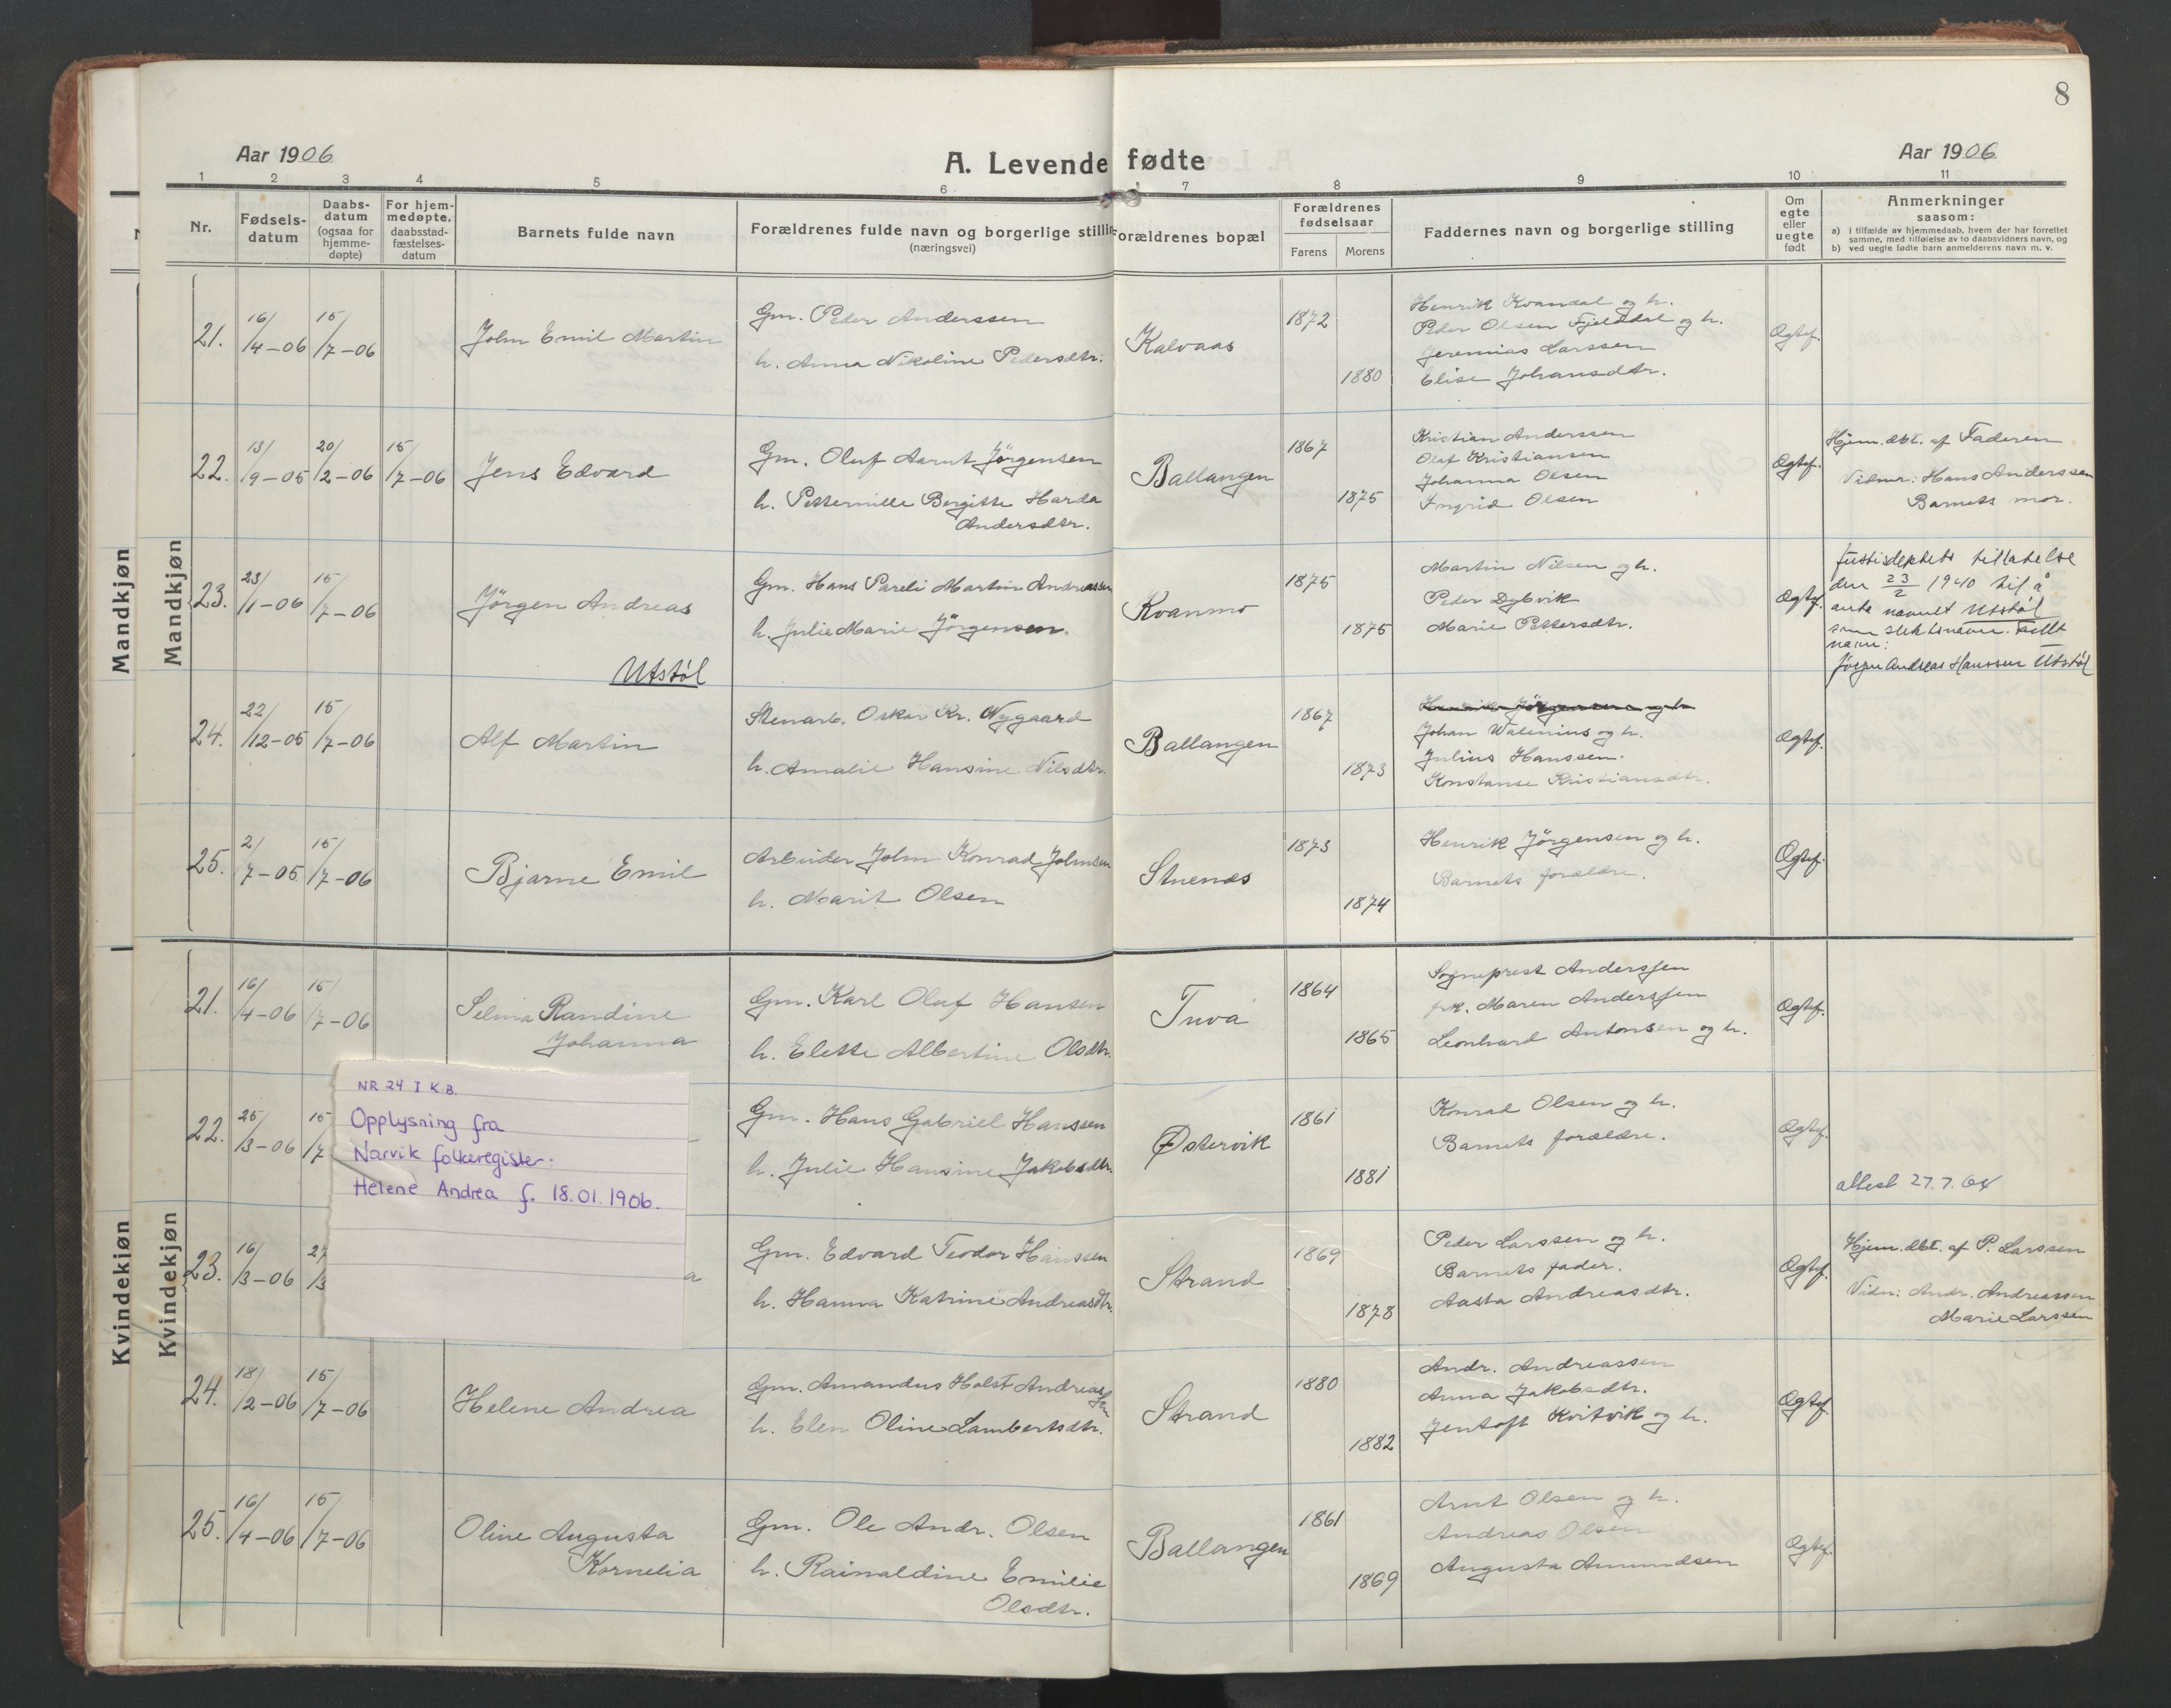 8
Aar 1906
A. Levende fødte
Aar 1906
1 2 3 4 5 6 7 8 9 10 11
Nr.
Fødsels-
datum
Daabs-
datum
(ogsaa for
hjemme-
døpte)
For hjem-
medøpte,
daabsstad-
fæstelses-
datum
Barnets fulde navn
Forældrenes fulde navn og borgerlige stillin
(næringsvei)
orældrenes bopæl
Forældrenes
fødselsaar
Farens Morens
Faddernes navn og borgerlige stilling
Om
egte
eller
uegte
født
Anmerkninger
saasom:
a) i tilfælde av hjemmedaab, hvem der har forrettet
samme, med tilføielse av to daabsvidners navn, og
b) ved uegte fødte barn anmelderens navn m. v.
Mandkjøn
Mandkjøn
21. 16/4-06 15/7-06
John Emil Martin
Gm. Peder Anderssen
h. Anna Nikoline Pedersdtr.
Kalvaas
1872
1880
Henrik Kvandal og h.
Peder Olsen Fjelddal og h.
Jeremias Larssen
Elise Johansdtr.
Ægtef.
22. 13/9-05 20/2-06 15/7-06
Jens Edvard
Gm. Oluf Aarnt Jörgensen
h. Petternille Bergitte Harda
Andersdtr.
Ballangen
1867
1875
Kristian Anderssen
Olaf Kristiansen
Johanna Olsen
Ingrid Olsen
Ægtef.
Hjem.dbt. af Faderen
Vidner: Hans Anderssen
Barnets mor.
23. 23/1-06 15/7-06
Jörgen Andreas
Utstöl
Gm. Hans Pareli Martin Andreassen
h. Julie Marie Jörgensen.
Kvanmo
1875
1875
Martin Nilsen og h.
Peder Dybvik
Marie Pettersdtr.
Ægtef.
Justisdeptets tillatelse
den 23/2 1940 til å
anta navnet Utstöl
som slektsnavn. Fullt
navn:
Jörgen Andreas Hanssen Utstöl
24. 22/12-05 15/7-06
Alf Martin
Stenarb. Oskar Kr. Nygaard
h. Amalie Hansine Nilsdtr.
Ballangen
1867
1873
Henrik Jörgensen og h.
Johan Walenius og h.
Julius Hanssen.
Konstanse Kristiansdtr.
Ægtef.
25. 2/7-05 15/7-06
Bjarne Emil
Arbeider John Konrad Johnsen
h. Marit Olsen
Stuenes
1873
1874
Henrik Jörgensen og h.
Barnets forældre.
Ægtef.
Kvindekjøn
Kvindekjøn
21. 16/4-06 15/7-06
Selma Randine
Johanna
Gm. Karl Oluf Hansen
h. Elette Albertine Olsdtr.
Tuva
1864
1865
Sogneprest Anderssen
frk. Maren Anderssen
Leonhard Antonsen og h.
Ægtef.
22. 25/3-06 15/7
Gm. Hans Gabriel Hanssen
h. Julie Hansine Jakobsdtr.
Østervik
1861
1881
Konrad Olsen og h.
Barnets forældre.
Ægtef.
attest 27.7.64
NR 24 I K.B.
Opplysning fra
Narvik folkeregister.
Helene Andrea f. 18.01.1906.
23. 16/3-06 27/3
a
Gm. Edvard Teodor Hanssen
h. Hanna Katrine Andreasdtr.
Strand
1869
1878
Peder Larssen og h.
Barnets fader.
Aasta Andreasdtr.
Ægtef.
Hjem.dbt. af P. Larssen
Vidn: Andr. Andreassen
Marie Larssen
24. 18/2-06 15/7-06
Helene Andrea
Gm. Amandus Holst Andreassen
h. Elen Oline Lambertsdtr.
Strand
1880
1882
Andr. Andreassen
Anna Jakobsdtr.
Jentoft Kvitvik og h.
Ægtef.
25. 16/4-06 15/7-06
Oline Augusta
Kornelia
Gm. Ole Andr. Olsen
h. Rainaldine Emilie
Olsdtr.
Ballangen
1861
1869
Arnt Olsen og h.
Andreas Olsen
Augusta Amundsen
Ægtef.